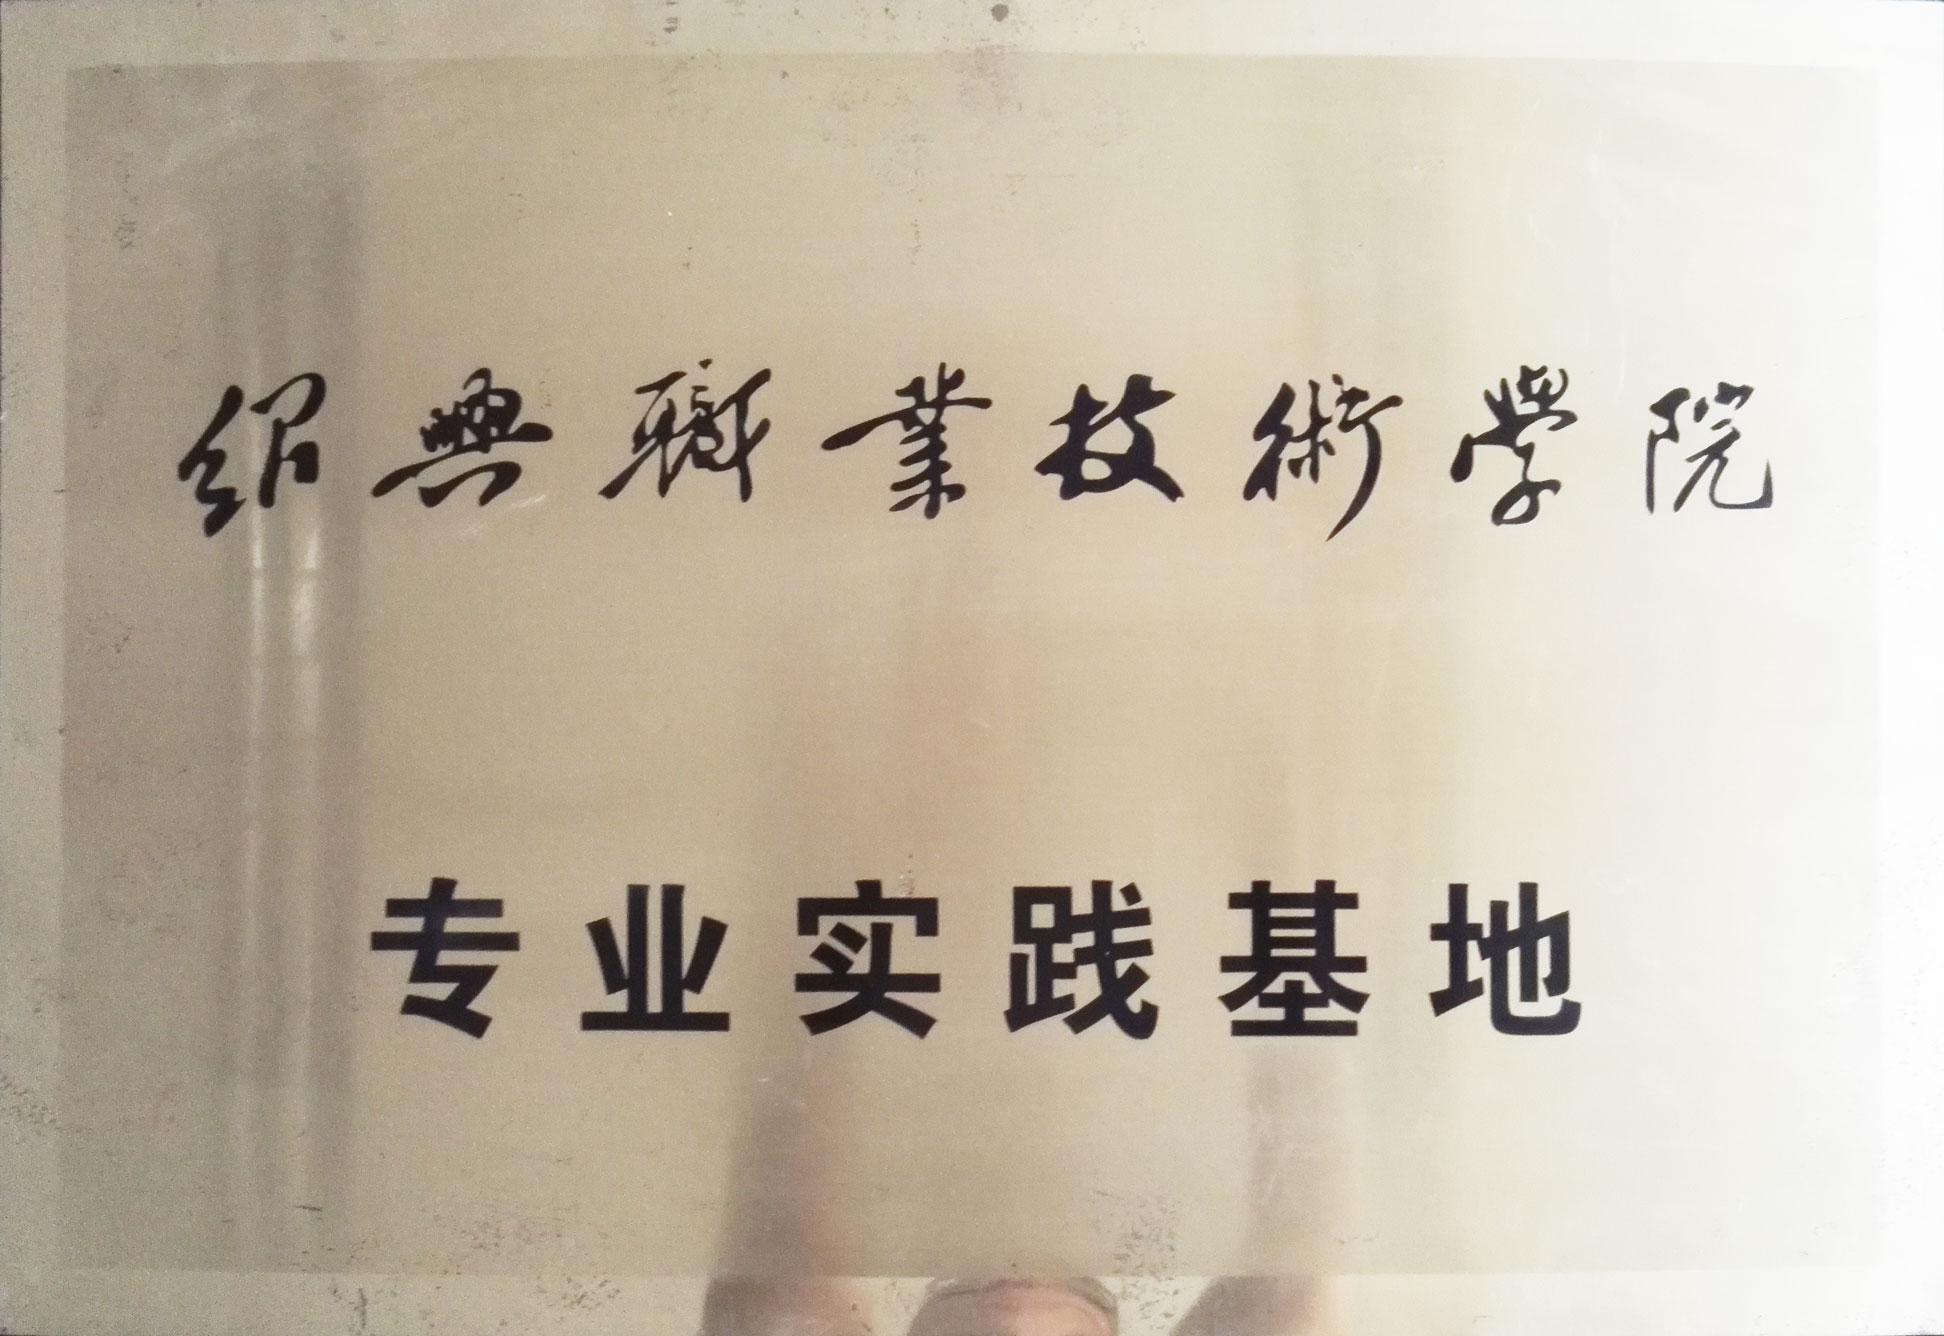 紹興職業技術學院
专业实践基地